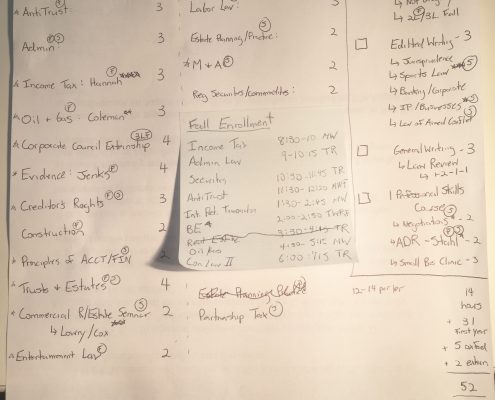 AntiTrust (F) 3
Admin: (S) 3
* Income Tax: Hannah 3
* Oil + Gas: Coleman 3
* Corporate Council Externship (3LF) 4
* Evidence: Jenks (F) 4
* Creditor's Rights (F)(S) 3
Construction (F) 2
* Principles of ACCT/FIN (S) 2
* Trusts + Estates (F)(S) 4
* Commercial R/Estate Seminar (S) 2
↳ Lowry/Cox
* Entertainment Law (F) 2
Labor Law: (S) 3
Estate Planning/Practice: (S) 2
* M + A (S) 2
Reg Securities/Commodities: 2
Fall Enrollment
Income Tax 8:30-10 MW
Admin Law 9-10:15 TR
Securities 10:30-11:45 TR
AntiTrust
Int. Pet. 1:30-2:45 MW
BE 4
Real Estate
Oil/Gas
Con/Law II 6:00-7:15 TR
Estate Planning
Partnership Tax (S) 2
↳ 2L/3L Fall
Edited Writing - 3
↳ Jurisprudence
↳ Sports Law (S)
↳ Banking/Corporate
↳ IP/Businesses
↳ Law of Armed Conflict
General Writing - 3
↳ Law Review
↳ +2-1-1
1 Professional Skills
Course
↳ Negotiations - 2
↳ ADR - Stahl - 2
↳ Small Bus Clinic - 3
12-14 per/er
14
hours
+ 31
First year
+ 5
+ 2 extern
52